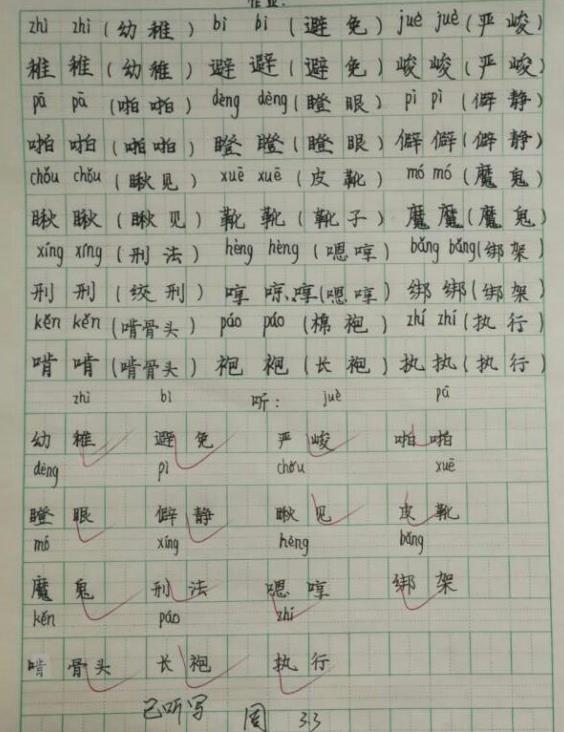 作业:
zhì zhì (幼稚) bì bì (避免) juè juè (严峻)
稚稚(幼稚) 避避(避免) 峻峻(严峻)
pā pā (啪啪) dèng dèng(瞪眼) pì pì (僻静)
啪啪(啪啪) 瞪瞪(瞪眼) 僻僻(僻静)
chǒu chǒu (瞅见) xuē xuē (皮靴) mó mó (魔鬼)
瞅瞅(瞅见) 靴靴(靴子) 魔魔(魔鬼)
xíng xíng (刑法) hèng hèng (嗯哼) bǎng bǎng(绑架)
刑刑(绞刑) 哼哼、哼(嗯哼) 绑绑(绑架)
kěn kěn (啃骨头) páo páo (棉袍) zhí zhí (执行)
啃啃(啃骨头) 袍袍(长袍) 执执(执行)
zhì bì 听: juè pā
幼稚 避免 严峻 啪啪
dèng pì chǒu xuē
瞪眼 僻静 瞅见 皮靴
mó xíng hēng bǎng
魔鬼 刑法 嗯哼 绑架
kěn páo zhí
啃骨头 长袍 执行
已听写 周 3.3